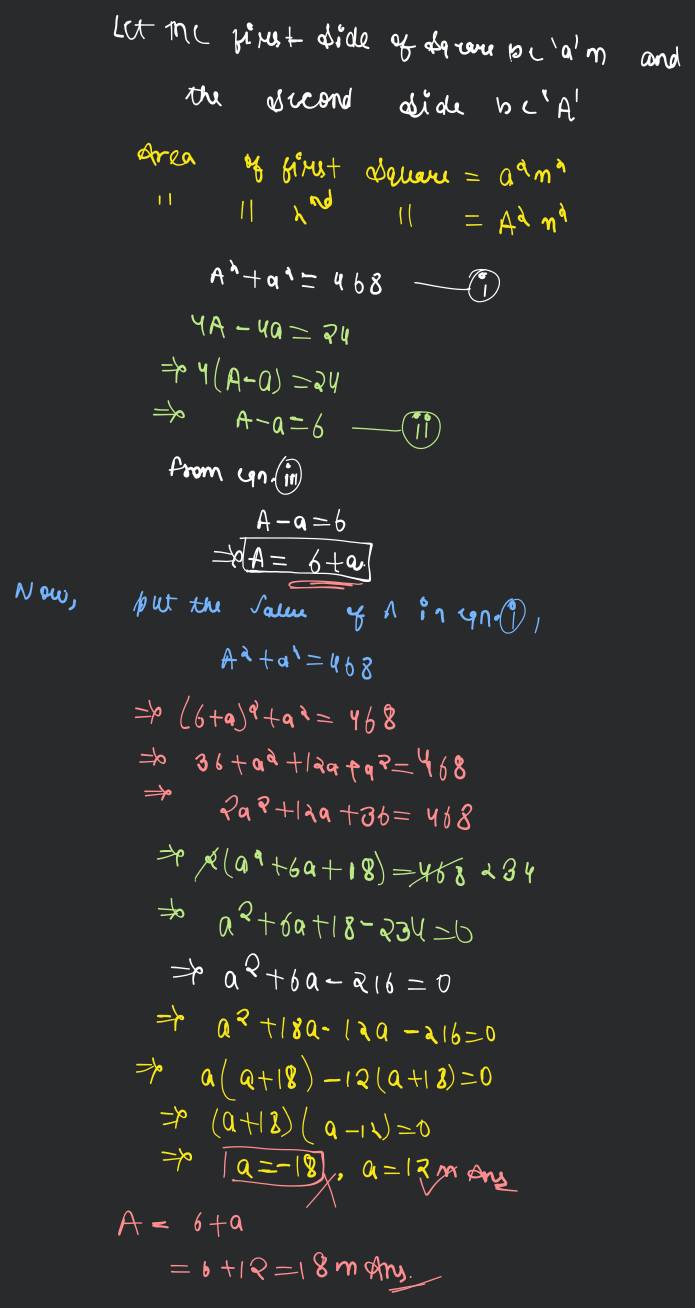 Let the first side of square be 'a' m and
the second side be 'A'
Area of first square = a²m²
" " 2nd " = A² m²
A² + a² = 468 — (i)
4A - 4a = 24
⇒ 4(A-a) = 24
⇒ A-a = 6 — (ii)
from eqn. (ii)
A-a = 6
⇒ A = 6+a
Now, put the value of A in eqn. (i),
A² + a² = 468
⇒ (6+a)² + a² = 468
⇒ 36 + a² + 12a + a² = 468
⇒ 2a² + 12a + 36 = 468
⇒ 2(a² + 6a + 18) = 468 234
⇒ a² + 6a + 18 - 234 = 0
⇒ a² + 6a - 216 = 0
⇒ a² + 18a - 12a - 216 = 0
⇒ a(a+18) - 12(a+18) = 0
⇒ (a+18)(a-12) = 0
⇒ a = -18, a = 12 m Ans
A = 6+a
= 6+12 = 18 m Ans.